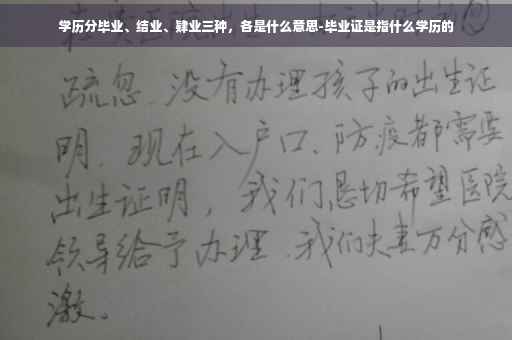 学历分毕业、结业、肄业三种，各是什么意思-毕业证是指什么学历的
疏忽、没有办理孩子的出生证
明、现在入户口、防疫都需要
出生证明，我们恳切希望医院
领导给予办理、我们夫妻万分感
激。